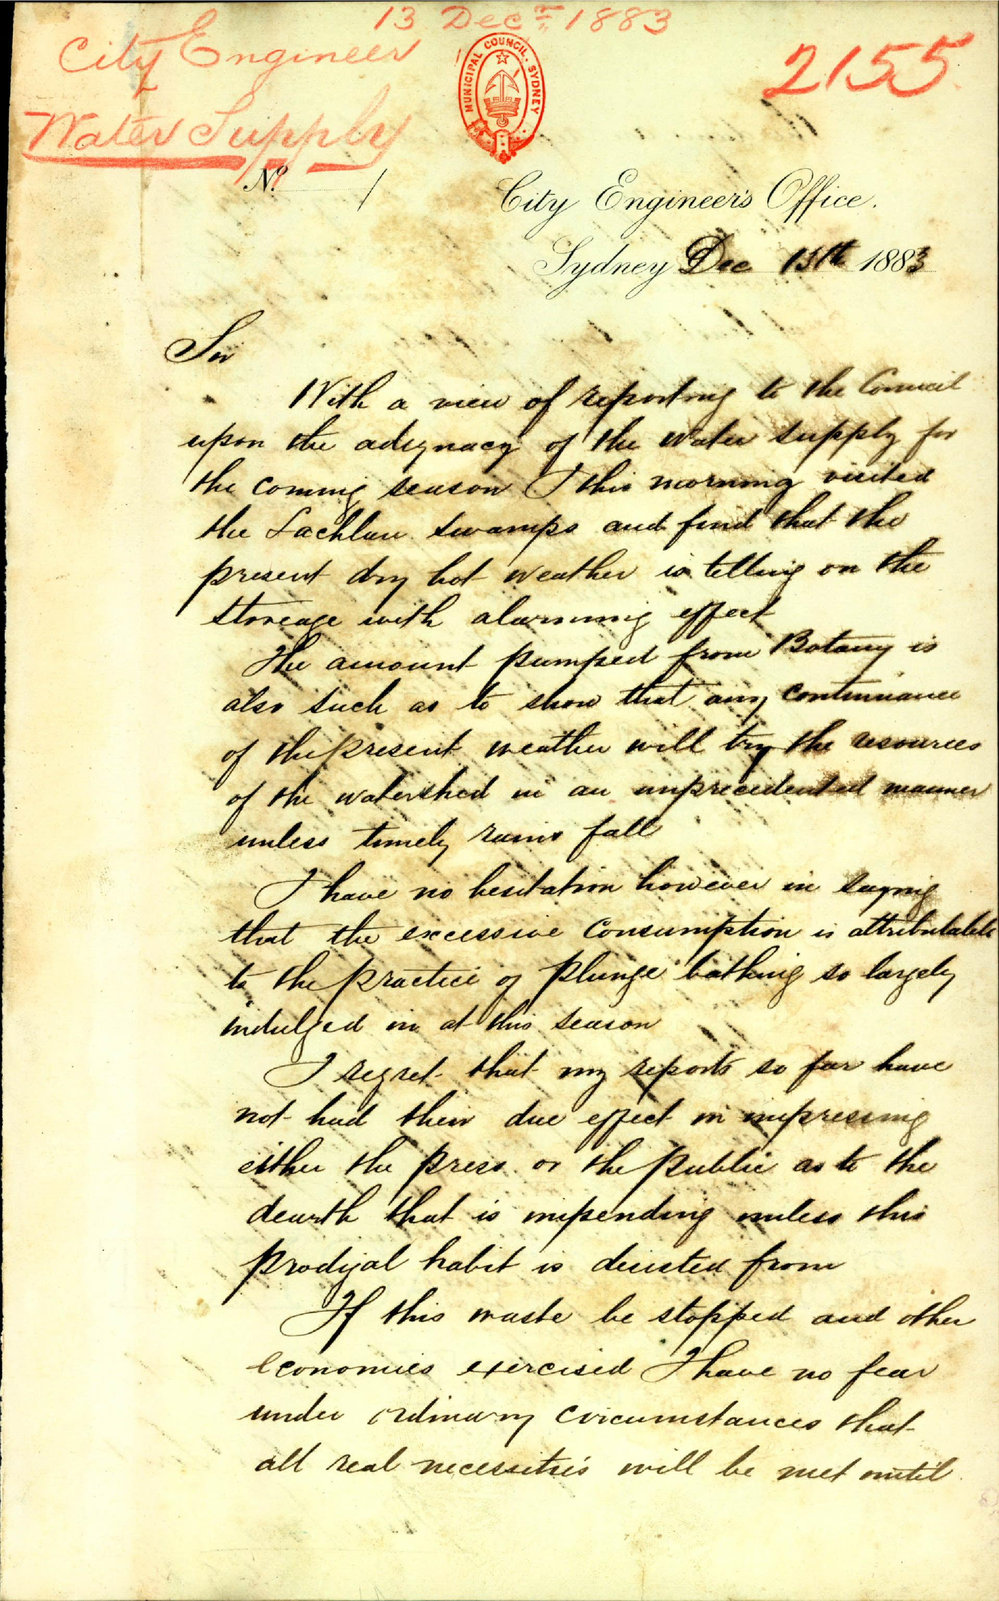 13 Decr 1883
City Engineer
2155
Water Supply
MUNICIPAL COUNCIL, SYDNEY
No. /
City Engineer's Office.
Sydney Dec 13th 1883
Sir
With a view of reporting to the Council
upon the adequacy of the water supply for
the coming season I this morning visited
the Lachlan Swamps and find that the
present dry hot weather is telling on the
storeage with alarming effect
The amount pumped from Botany is
also such as to show that any continuance
of the present weather will try the resources
of the watershed in an unprecedented manner
unless timely rains fall
I have no hesitation however in saying
that the excessive consumption is attributable
to the practice of plunge bathing so largely
indulged in at this season
I regret that my reports so far have
not had their due effect in impressing
either the press or the public as to the
dearth that is impending unless this
prodigal habit is desisted from
If this waste be stopped and other
economies exercised I have no fear
under ordinary circumstances that
all real necessities will be met until